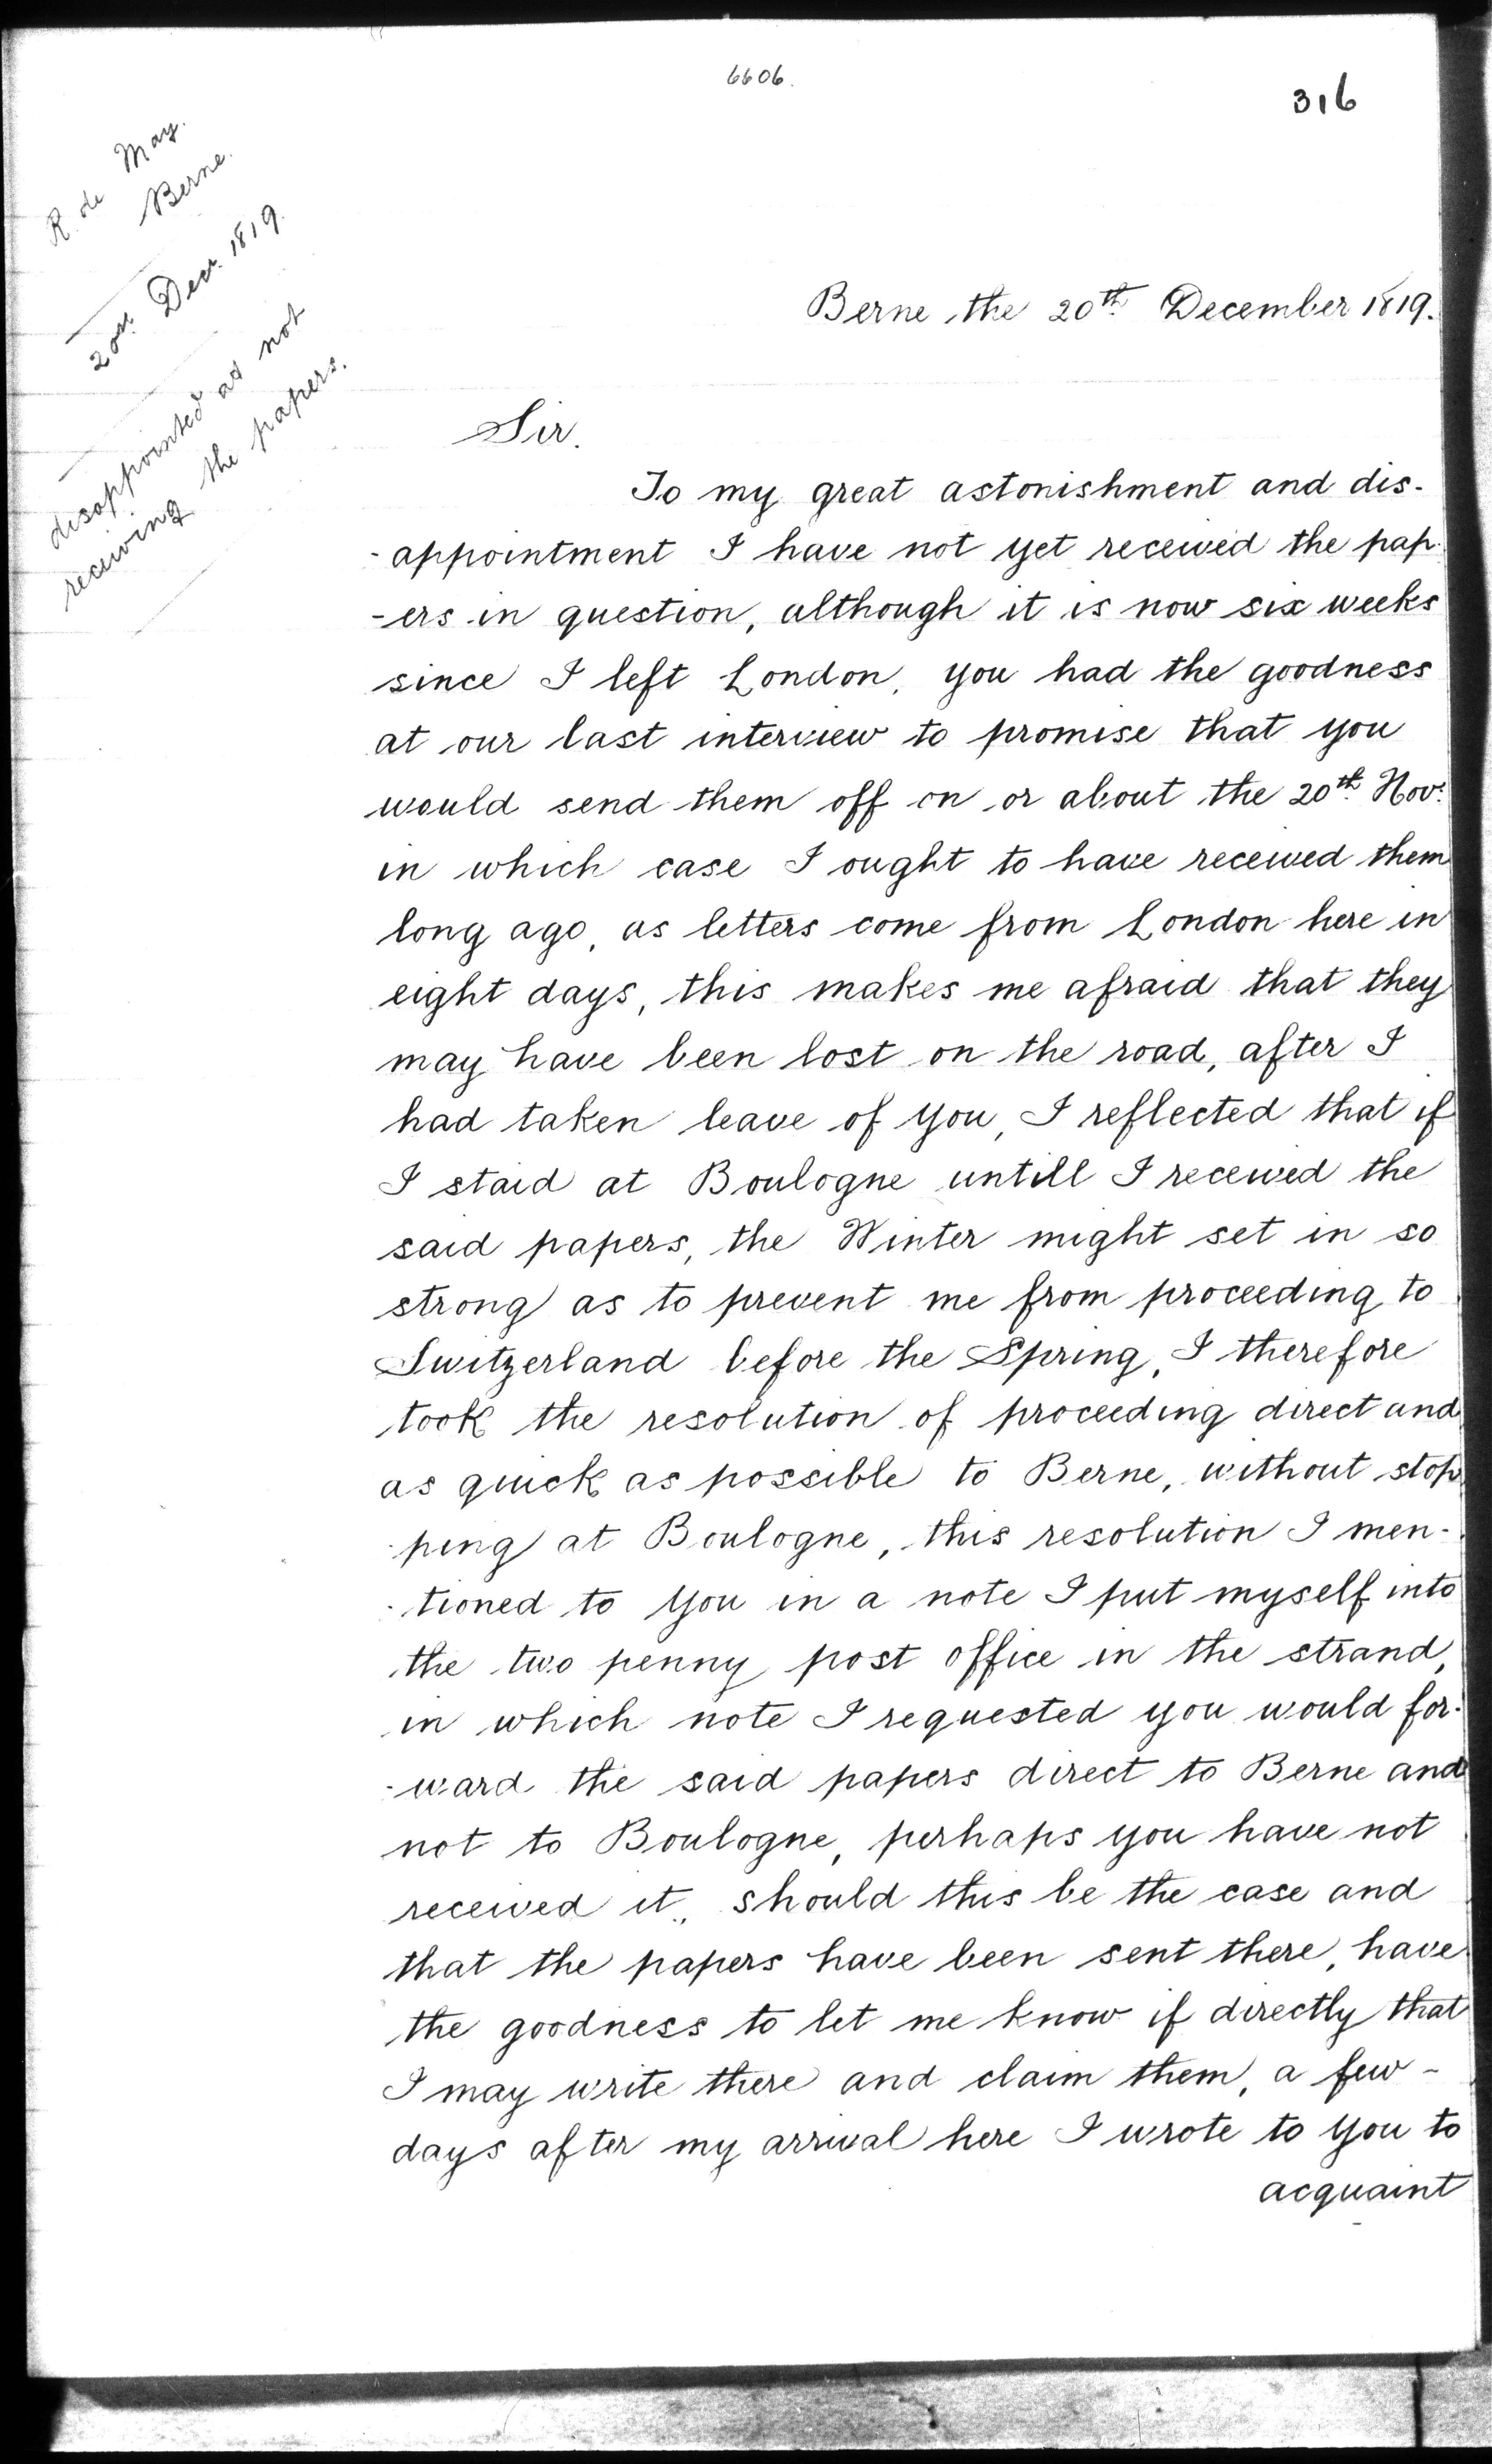 6606.
316
R. de May.
Berne.
20th Decr. 1819.
disappointed at not
receiving the papers.
Berne, the 20th December 1819.
Sir.
To my great astonishment and dis-
-appointment I have not yet received the pap-
-ers in question, although it is now six weeks
since I left London, you had the goodness
at our last interview to promise that you
would send them off on or about the 20th Nov:
in which case I ought to have received them
long ago, as letters come from London here in
eight days, this makes me afraid that they
may have been lost on the road, after I
had taken leave of you, I reflected that if
I staid at Boulogne untill I received the
said papers, the Winter might set in so
strong as to prevent me from proceeding to
Switzerland before the Spring, I therefore
took the resolution of proceeding direct and
as quick as possible to Berne, without stop
-ping at Boulogne, this resolution I men-
-tioned to you in a note I put myself into
the two penny post office in the strand,
in which note I requested you would for-
-ward the said papers direct to Berne and
not to Boulogne, perhaps you have not
received it, should this be the case and
that the papers have been sent there, have
the goodness to let me know if directly that
I may write there and claim them, a few -
days after my arrival here I wrote to you to
acquaint